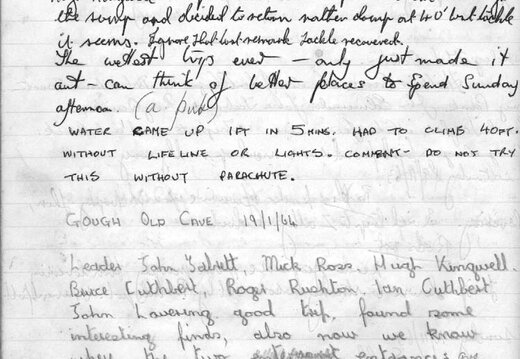 the sump and decided to return rather damp at 40' but tackle
it seems. Ignore that last remark Tackle recovered.
The wettest trip ever – only just made it
out – can think of better places to spend Sunday
afternoon (a pub)
WATER CAME UP 1FT IN 5 MINS. HAD TO CLIMB 40FT.
WITHOUT LIFELINE OR LIGHTS. COMMENT- DO NOT TRY
THIS WITHOUT PARACHUTE.
GOUGH OLD CAVE 19/1/64
Leader John Mick Ross. Hugh Kingwell.
Bruce Cuthbert, Roger Rushton, Ian Cuthbert
John Lavering good trip, found some
interesting finds, also now we know
the two entrances